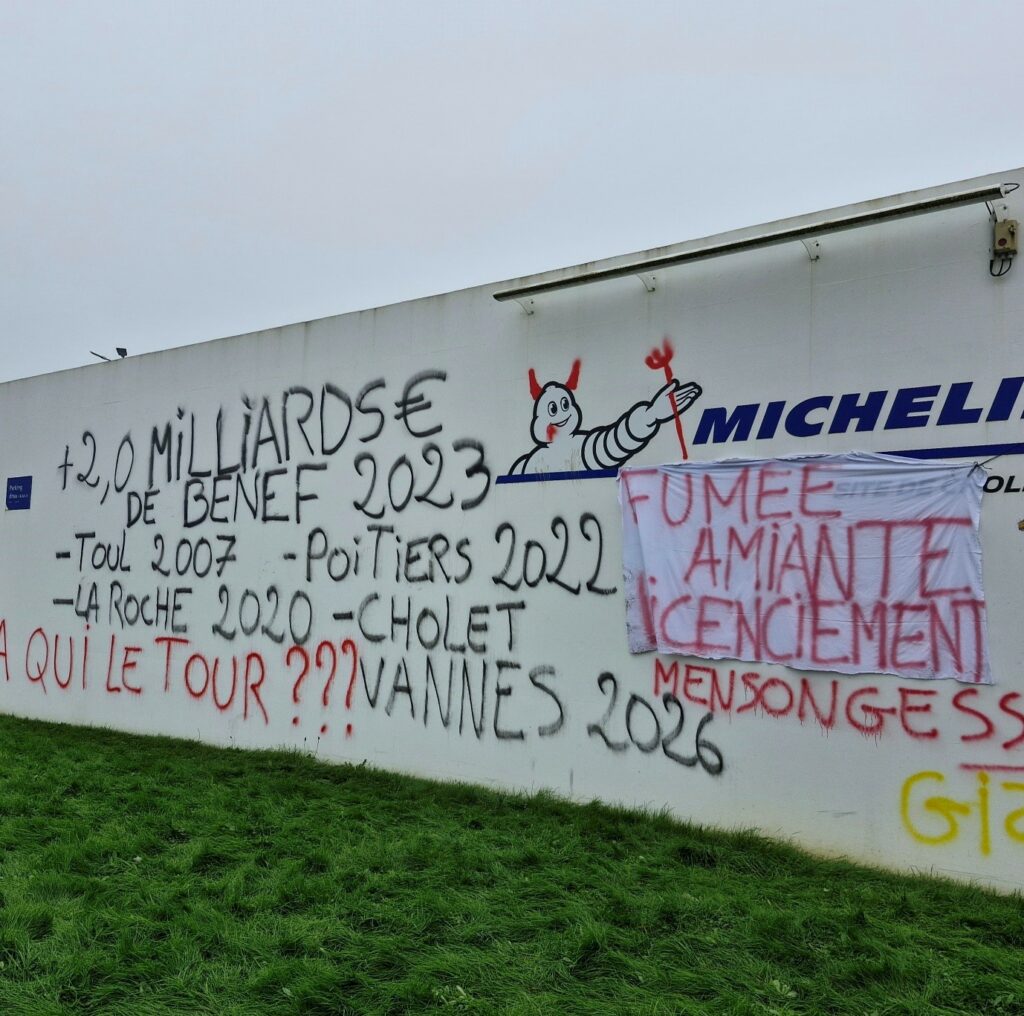 +2,0 MiLLiARDS€
DE BENEF 2023
-TOUL 2007 -POiTiERS 2022
-LA ROCHE 2020 -CHOLET
A QUi LE TOUR ??? VANNES 2026
MICHELI
FUMEE
AMIANTE
LiCENCIEMENT
MENSONGESSS
Gi